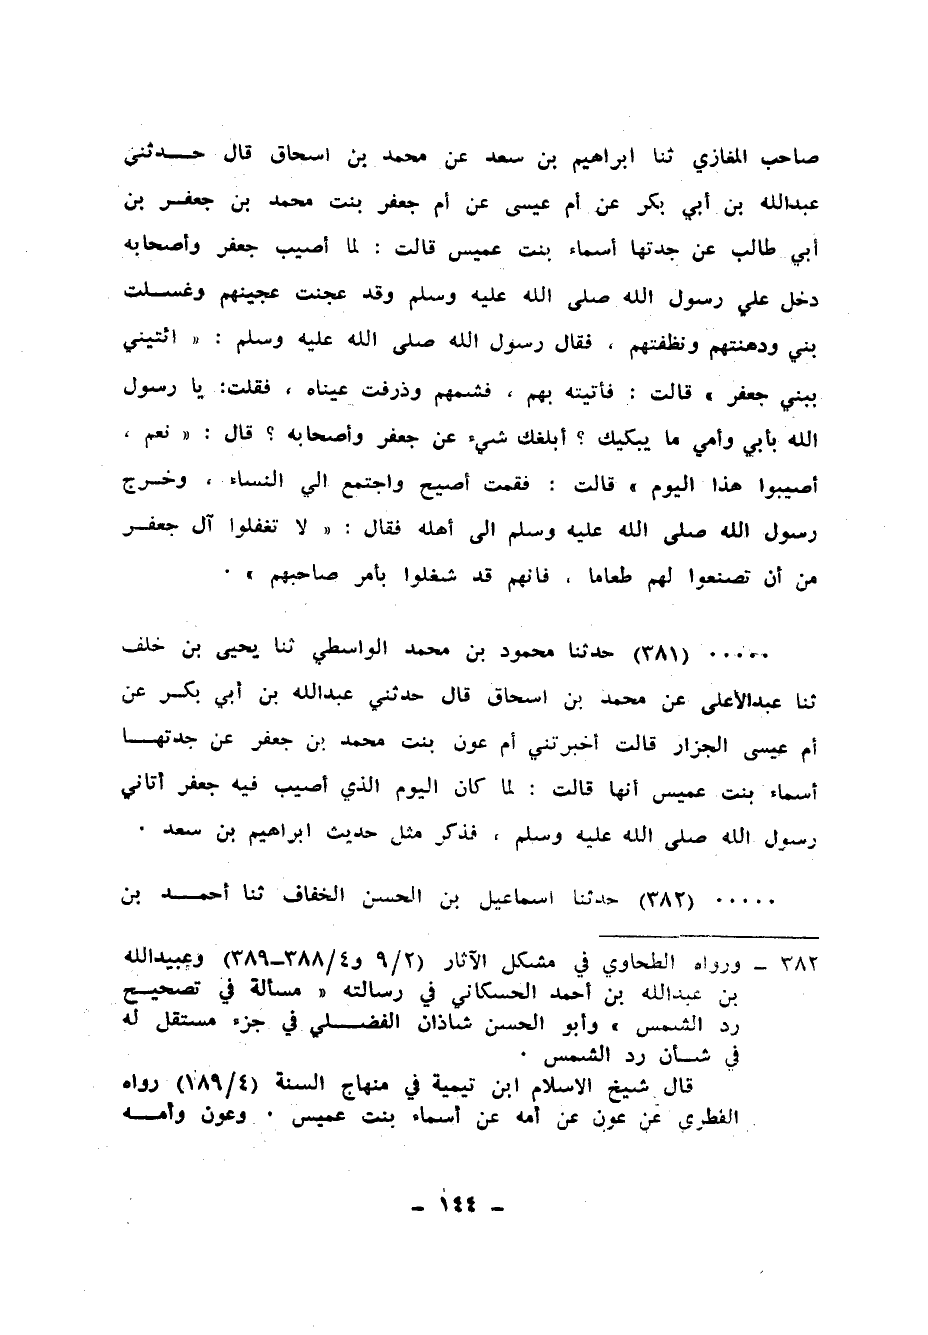 صاحب المغازي ثنا ابراهيم بن سعد عن محمد بن اسحاق قال حـــدثني
عبدالله بن أبي بكر عن أم عيسى عن أم جعفر بنت محمد بن جعفـر بن
أبي طالب عن جدتها أسماء بنت عميس قالت : لما أصيب جعفر وأصحابه
دخل علي رسول الله صلى الله عليه وسلم وقد عجنت عجينهم وغســلت
بني ودهنتهم ونظفتهم ، فقال رسول الله صلى الله عليه وسلم : « ائتيني
ببني جعفر » قالت : فأتيته بهم ، فشمهم وذرفت عيناه ، فقلت: يا رسول
الله بأبي وأمي ما يبكيك ؟ أبلغك شيء عن جعفر وأصحابه ؟ قال : « نعم ،
أصيبوا هذا اليوم » قالت : فقمت أصيح واجتمع الي النساء ، وخـرج
رسول الله صلى الله عليه وسلم الى أهله فقال : « لا تغفلوا آل جعفـر
من أن تصنعوا لهم طعاما ، فانهم قد شغلوا بأمر صاحبهم » ٠
٠٠٠٠٠ (٣٨١) حدثنا محمود بن محمد الواسطي ثنا يحيى بن خلف
ثنا عبدالأعلى عن محمد بن اسحاق قال حدثني عبدالله بن أبي بكـر عن
أم عيسى الجزار قالت أخبرتني أم عون بنت محمد بن جعفر عن جدتهـــا
أسماء بنت عميس أنها قالت : لما كان اليوم الذي أصيب فيه جعفر أتاني
رسول الله صلى الله عليه وسلم ، فذكر مثل حديث ابراهيم بن سعد ٠
٠٠٠٠٠ (٣٨٢) حدثنا اسماعيل بن الحسن الخفاف ثنا أحمـــد بن
٣٨٢ ـ ورواه الطحاوي في مشكل الآثار (٩/٢ و٣٨٨/٤ـ٣٨٩) وعبيدالله
بن عبدالله بن أحمد الحسكاني في رسالته « مسألة في تصحيـح
رد الشمس » وأبو الحسن شاذان الفضــلي في جزء مستقل له
في شــأن رد الشمس ٠
قال شيخ الاسلام ابن تيمية في منهاج السنة (١٨٩/٤) رواه
الفطري عن عون عن أمه عن أسماء بنت عميس ٠ وعون وأمـــه
ـ ١٤٤ ـ